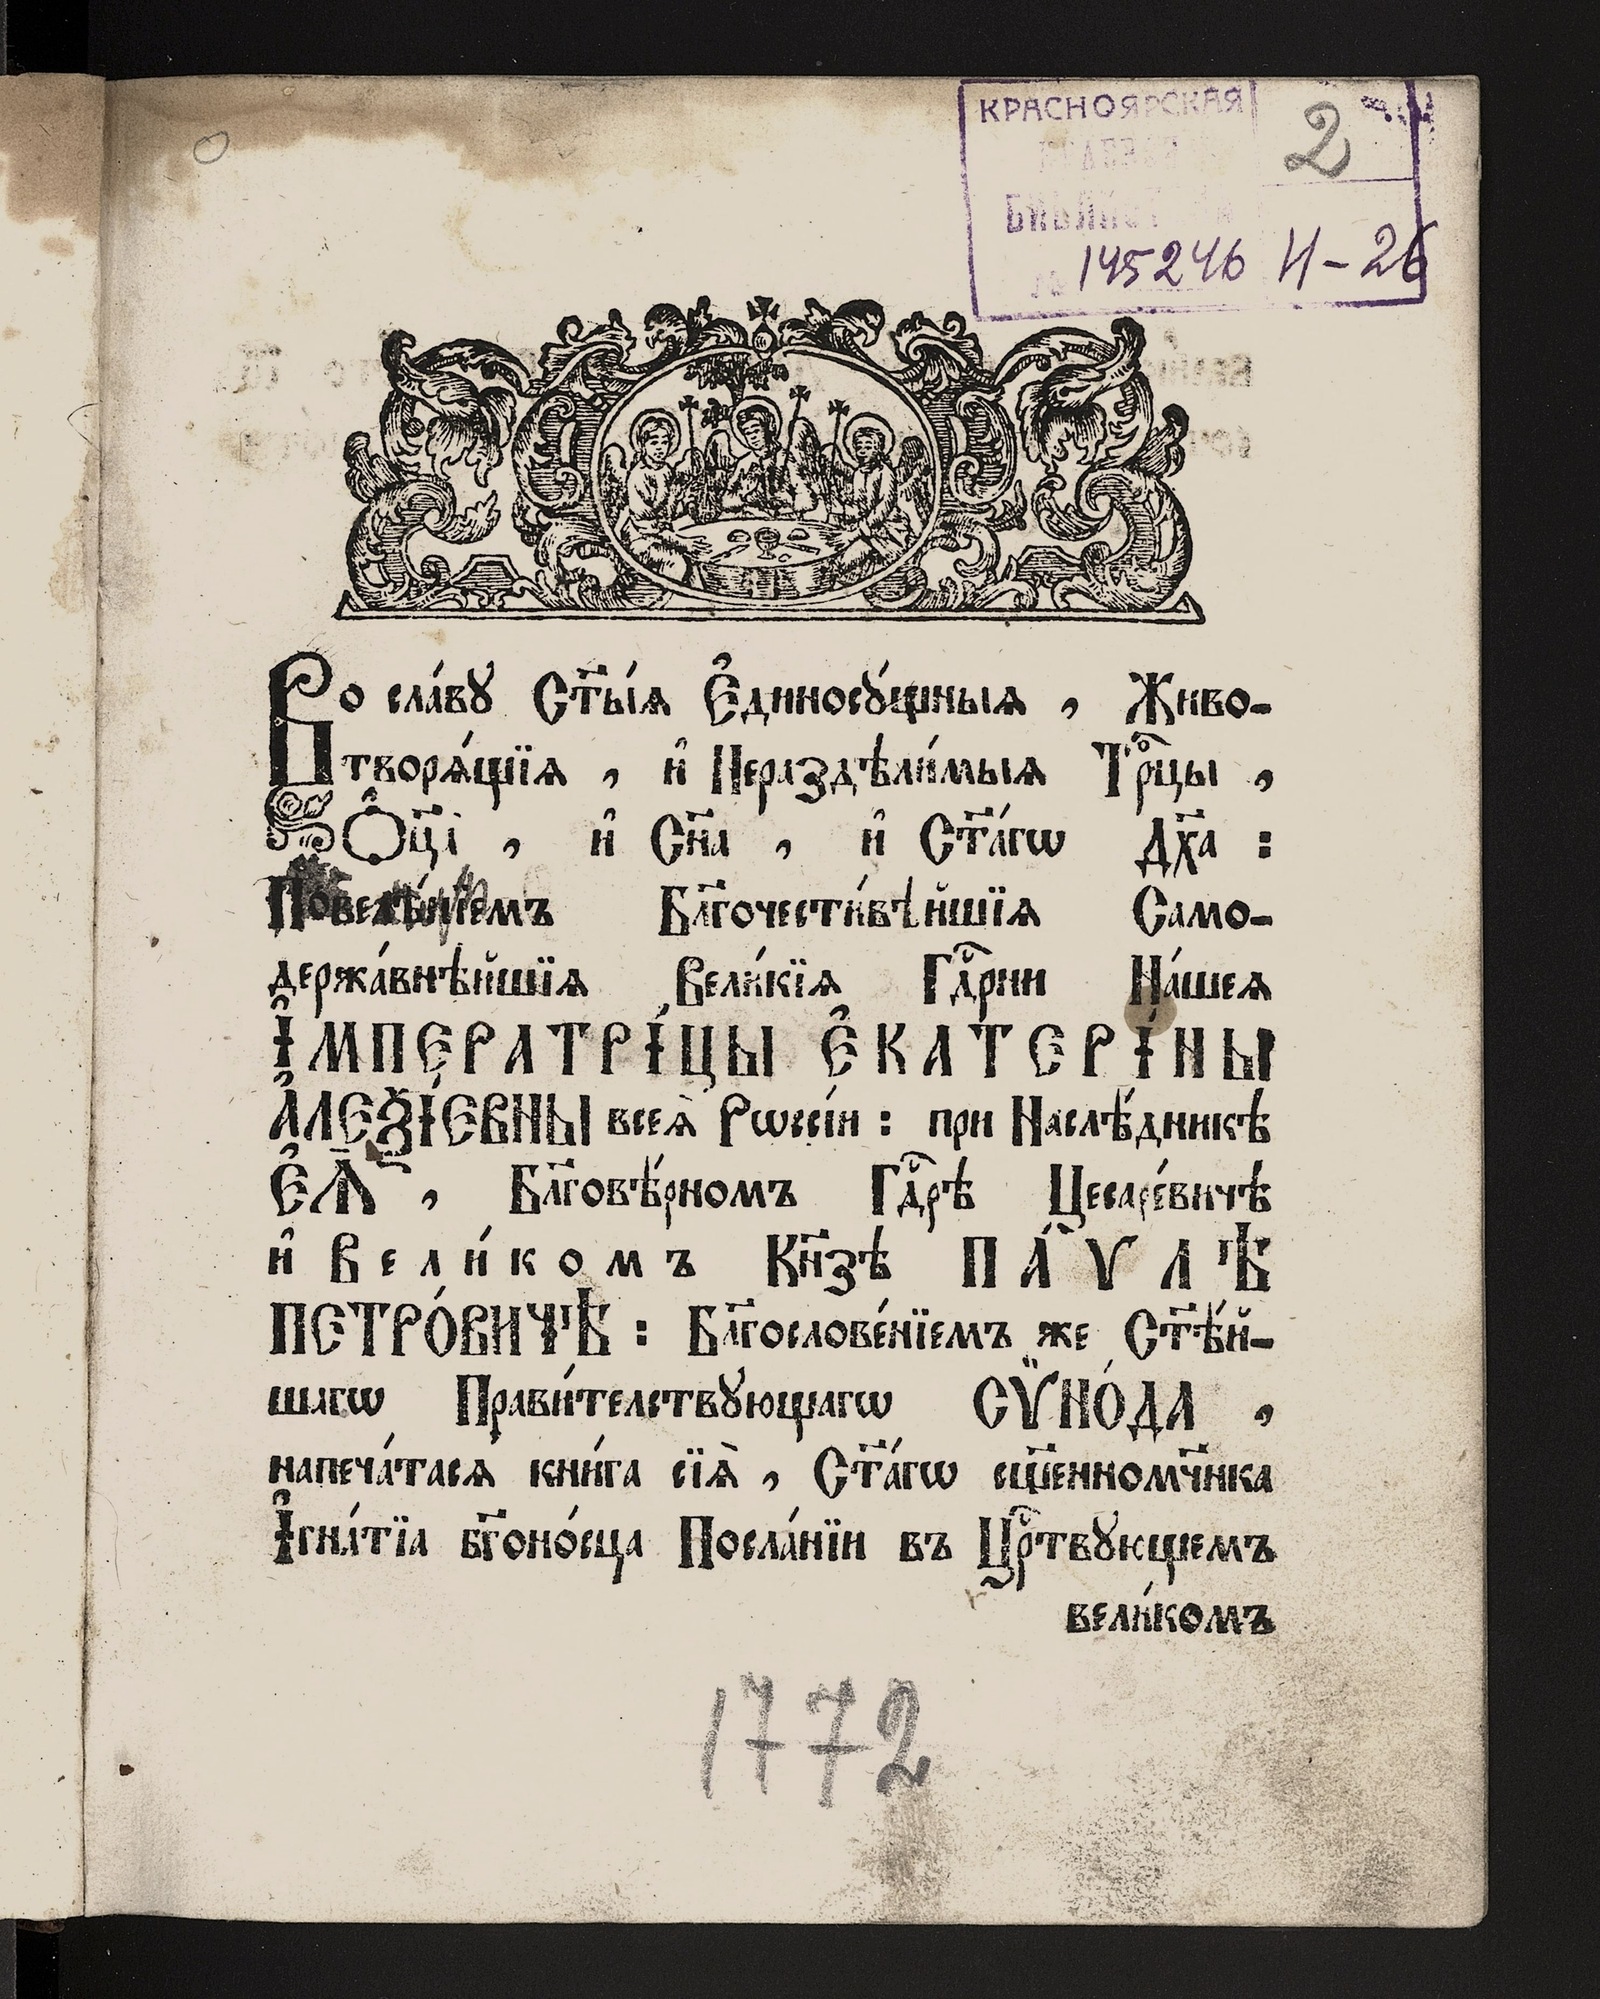 КРАСНОЯРСКАЯ
2
БИБЛИОТЕКА
145246 И-26
Во сла́вꙋ Ст҃ы́ѧ Є҆диносꙋ́щныѧ , Живо-
творѧ́щїѧ , и҆ Нераздѣли́мыѧ Трⷪ҇цы ,
Ѻ҆ц҃а̀ , и҆ Сн҃а , и҆ Ст҃а́гѡ Дх҃а :
Повелѣ́нїемъ Бл҃гочести́вѣйшїѧ Само-
держа́внѣйшїѧ Вели́кїѧ Гдⷭ҇рни На́шеѧ
І҆МПЕРАТРІ́ЦЫ Є҆КАТЕРІ́НЫ
А҆ЛЕѮІ́ЕВНЫ всеѧ̀ Рѡссі́и : при Наслѣ́дникѣ
Є҆Ѧ̀ , Бл҃говѣ́рномъ Гдⷭ҇рѣ Цесаре́вичѣ
и҆ Вели́комъ Кн҃зѣ ПА́ѴЛѢ
ПЕТРО́ВИЧѢ : Бл҃гослове́нїемъ же Ст҃ѣ́й-
шагѡ Прави́телствꙋющагѡ СѴ̈НО́ДА ,
напеча́тасѧ кни́га сїѧ̀ , Ст҃а́гѡ сщ҃енномч҃ника
І҆гна́тїа бг҃оно́сца Посла́нїи въ Црⷭ҇твꙋющемъ
вели́комъ
1772